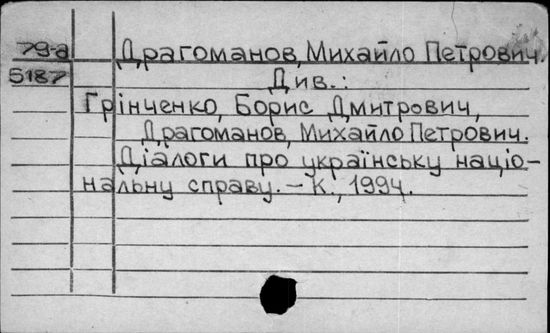 79-а Драгоманов, Михайло Петрович.
5187 Див.:
Грінченко, Борис Дмитрович,
Драгоманов, Михайло Петрович.
Діалоги про українську націо-
нальну справу. – К., 1994.